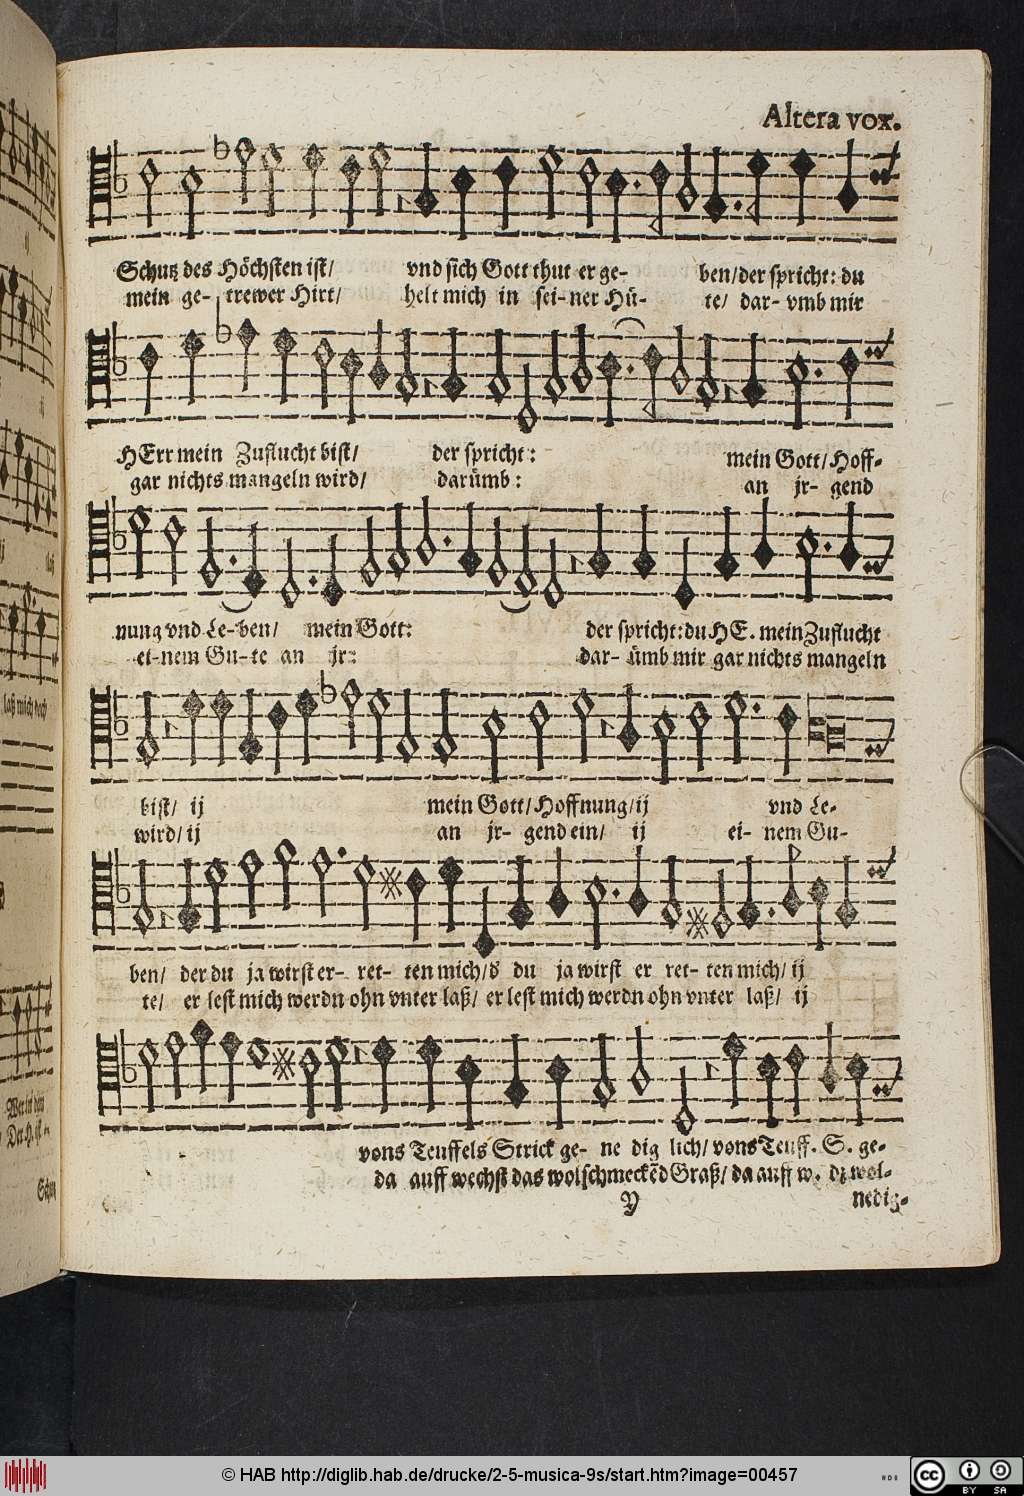 Altera vox.
Schutz des Höchsten ist/ vnd sich Gott thut er ge- ben/der spricht: du
mein ge- trewer Hirt/ helt mich in sei-ner Hü- te/ dar- vmb mir
HErr mein Zuflucht bist/ der spricht: mein Gott/Hoff-
gar nichts mangeln wird/ darümb: an jr- gend
nung vnd Le-ben/ mein Gott: der spricht:du HE. mein Zuflucht
ei-nem Gu-te an jr: dar- ümb mir gar nichts mangeln
bist/ ij mein Gott/Hoffnung/ij vnd Le-
wird/ij an jr- gend ein/ ij ei- nem Gu-
ben/ der du ja wirst er- ret- ten mich/d du ja wirst er ret- ten mich/ ij
te/ er lest mich werdn ohn vnter laß/ er lest mich werdn ohn vnter laß/ ij
vons Teuffels Strick ge- ne dig lich/ vons Teuff. S. ge-
da auff wechst das wolschmeckēd Graß/ da auff w. dz wol-
Y nedig-
laß mich doch
© HAB http://diglib.hab.de/drucke/2-5-musica-9s/start.htm?image=00457
cc BY SA